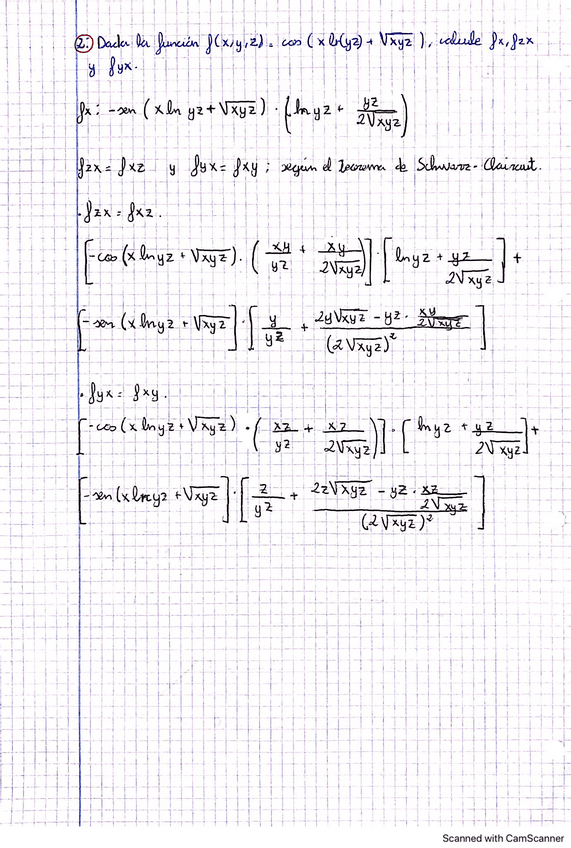 2: Dada la función f(x,y,z) = cos (x ln(yz) + √xyz), calcule fx, fzx
y fyx.
fx: -sen (x ln yz + √xyz) · (ln yz + yz/2√xyz)
fzx = fxz y fyx = fxy ; según el Teorema de Schwarz-Claircut.
· fzx = fxz.
[-cos (x ln yz + √xyz) · (xy/yz + xy/2√xyz)] · [ln yz + yz/2√xyz] +
[-sen (x ln yz + √xyz] · [y/yz + (2y√xyz - yz · xy/2√xyz)/(2√xyz)²]
· fyx = fxy.
[-cos (x ln yz + √xyz) · (xz/yz + xz/2√xyz)] · [ln yz + yz/2√xyz] +
[-sen (x ln yz + √xyz] · [z/yz + (2z√xyz - yz · xz/2√xyz)/(2√xyz)²]
Scanned with CamScanner